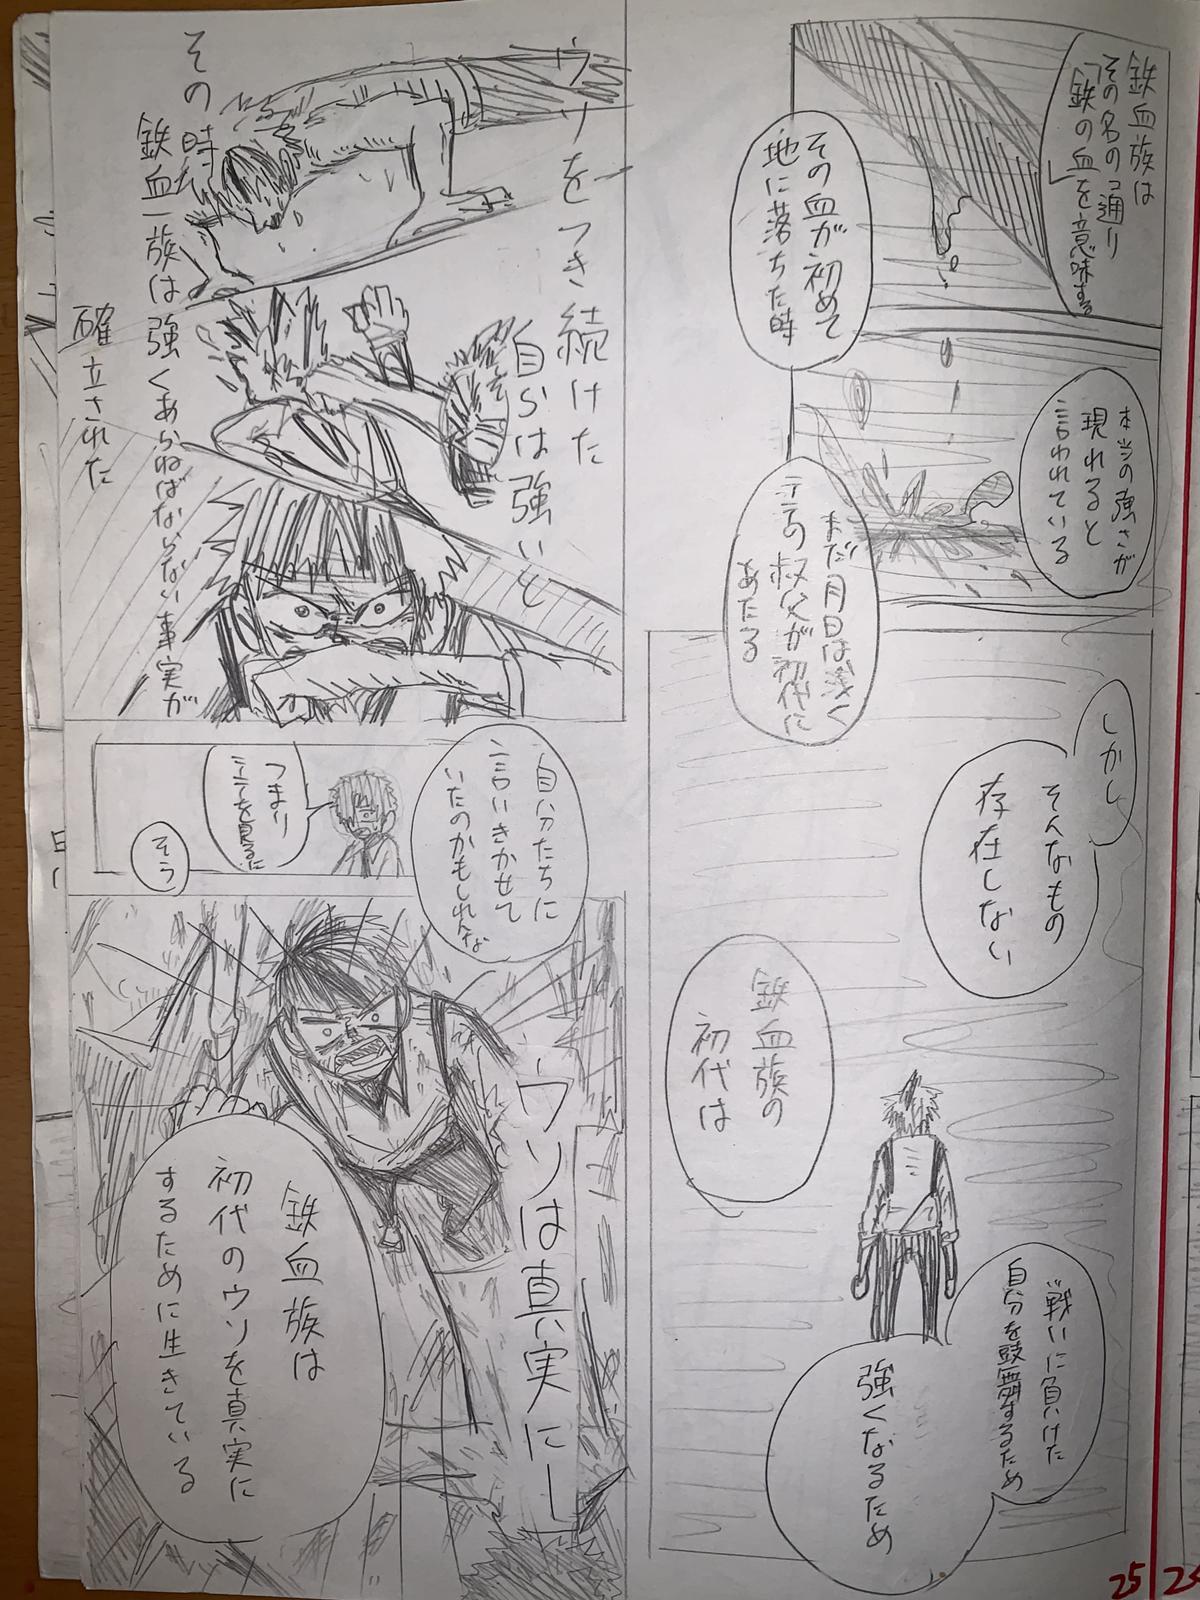 鉄血族は
その名の通り
「鉄の血を意味する」
その血が初めて
地に落ちた時
本当の強さが
現れると
言われている
まだ月日は浅く
テテの叔父が初代に
あたる
しかし
そんなもの
存在しない
鉄血族の
初代は
戦いに負けた
自分を鼓舞するため
強くなるため
ウソをつき続けた
自らは強いと
その時
鉄血一族は強くあらねばならない事実が
確立された
自分たちに
言いきかせて
いたのかもしれんな
つまり
テテを見るに
そう
ウソは真実にー
鉄血族は
初代のウソを真実に
するために生きている
25